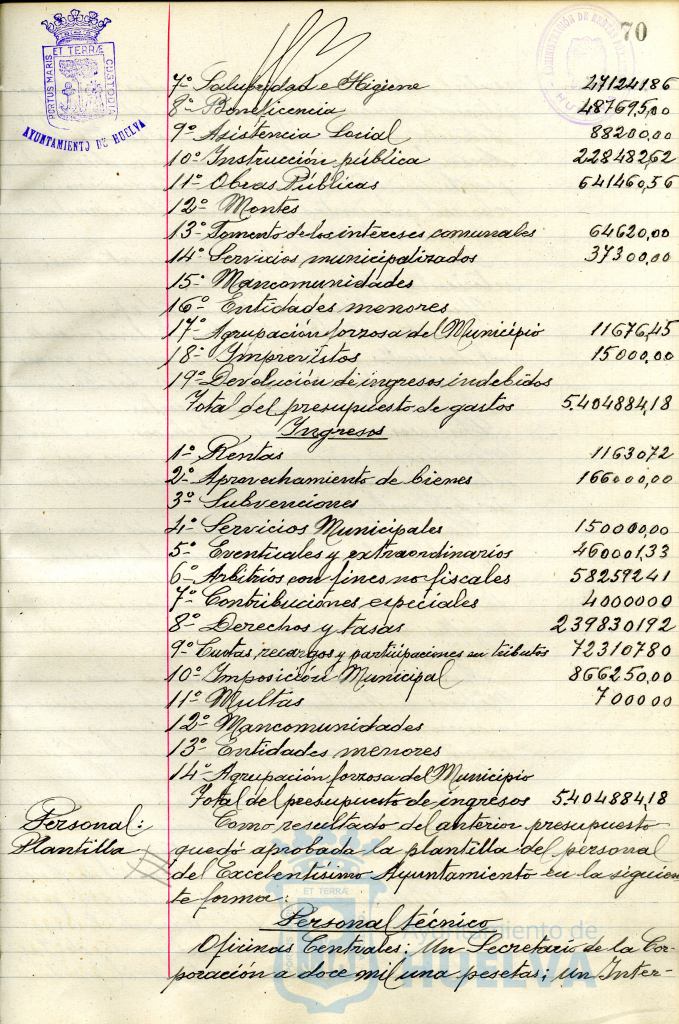 70
PORTUS MARIS ET TERRÆ CUSTODIA
AYUNTAMIENTO DE HUELVA
7º- Salubridad e Higiene 471241,86
8º- Beneficencia 487695,00
9º- Asistencia Social 88200,00
10º- Instrucción pública 228482,62
11º- Obras Públicas 641460,56
12º- Montes
13º- Fomento de los intereses comunales 64620,00
14º- Servicios municipalizados 37300,00
15- Mancomunidades
16º- Entidades menores
17º- Agrupación forzosa del Municipio 11676,45
18- Imprevistos 15000,00
19º- Devolución de ingresos indebidos
Total del presupuesto de gastos 5.404884,18
Ingresos
1º- Rentas 1163072
2º- Aprovechamiento de bienes 166000,00
3º- Subvenciones
4º- Servicios Municipales 150000,00
5º- Eventuales y extraordinarios 460001,33
6º- Arbitrios con fines no fiscales 58259241
7º- Contribuciones especiales 4000000
8º- Derechos y tasas 239830192
9º- Cuotas, recargos y participaciones en tributos 72310780
10º- Imposición Municipal 866250,00
11º- Multas 700000
12º- Mancomunidades
13º- Entidades menores
14º- Agrupación forzosa del Municipio
Total del presupuesto de ingresos 5.404884,18
Personal:
Plantilla
Como resultado del anterior presupuesto
quedó aprobada la plantilla del personal
del Excelentísimo Ayuntamiento en la siguien
te forma:
Personal técnico
Oficinas Centrales: Un Secretario de la Cor-
poración a doce mil una pesetas; un Inter-
ET TERRÆ
Ayuntamiento de
HUELVA